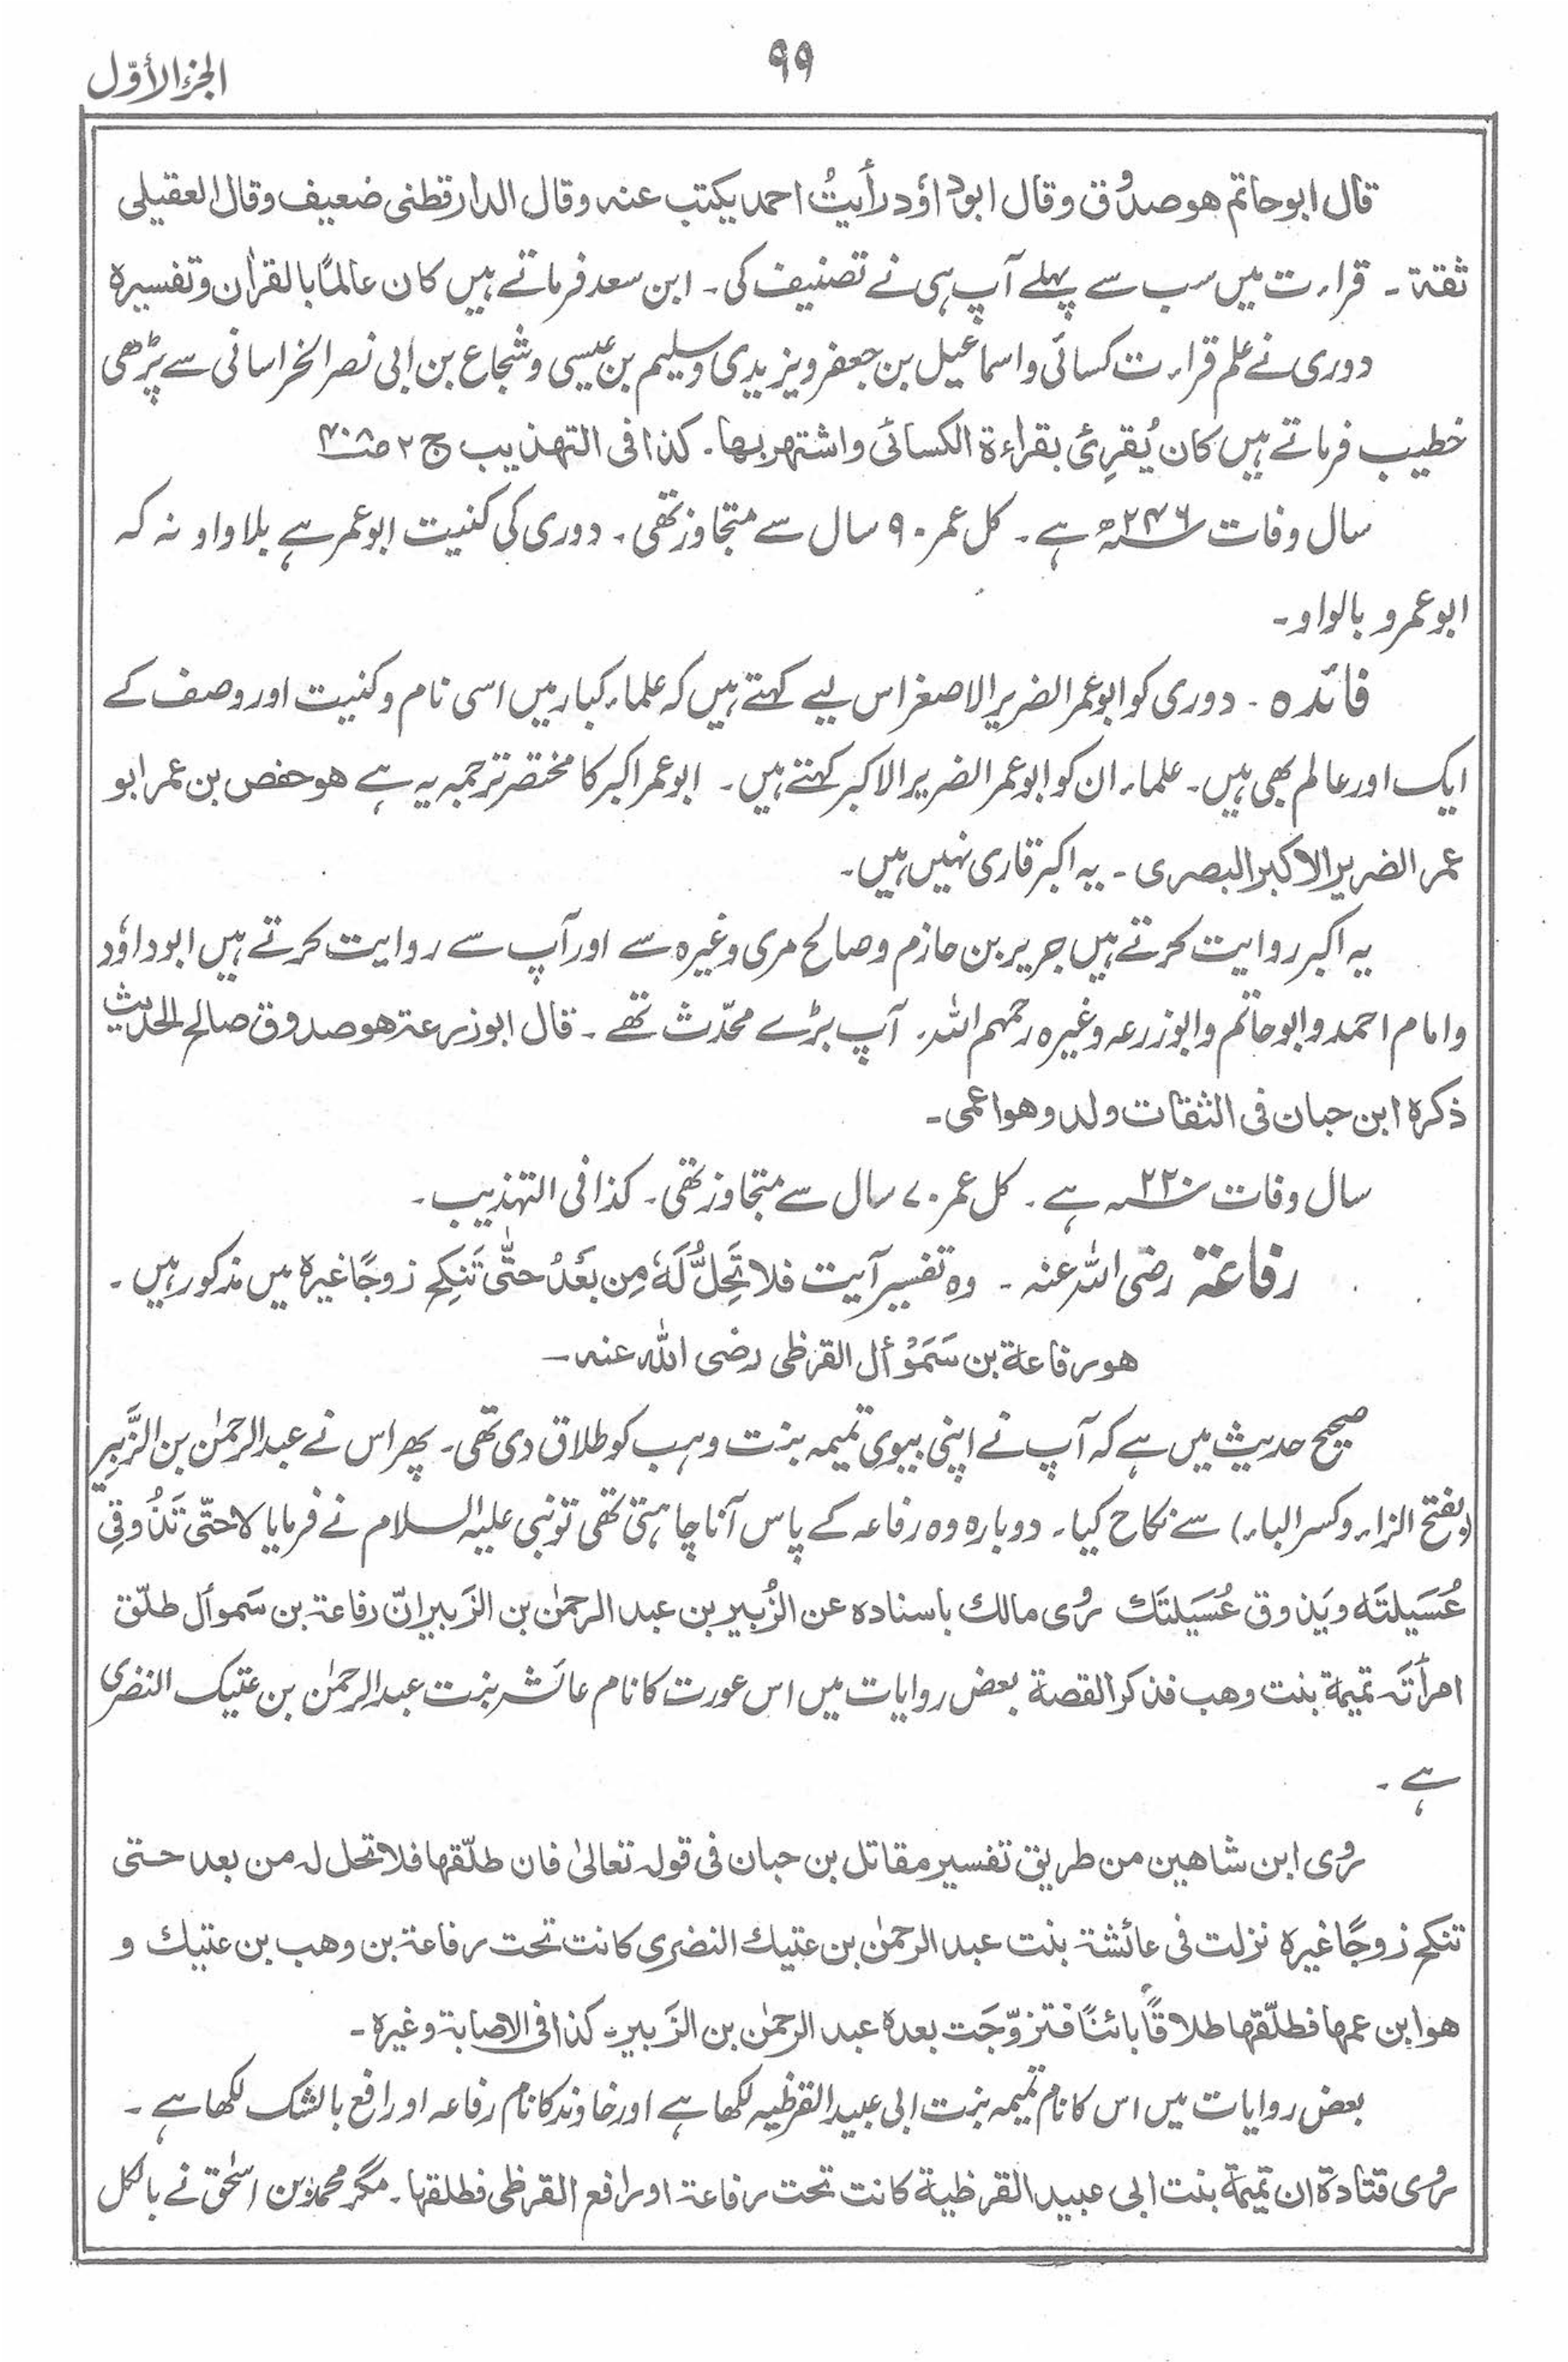 ٩٩
الجزء الأوّل
قال ابو حاتم هو صدُوق وقال ابوداؤد رأیتُ احمد یکتب عنہ وقال الدارقطنی ضعیف وقال العقیلی
ثقۃ ۔ قراءت میں سب سے پہلے آپ ہی نے تصنیف کی ۔ ابن سعد فرماتے ہیں کان عالمًا بالقراٰن وتفسیرہ
دوری نے علم قراءت کسائی واسماعیل بن جعفر ویزیدی وسلیم بن عیسی وشجاع بن ابی نصر الخراسانی سے پڑھی
خطیب فرماتے ہیں کان یُقرِئ بقراءۃ الکسائی واشتھر بھا ۔ کذا فی التھذیب ج ۲ ص۴۰۸
سال وفات ۲۴۶ھ ہے ۔ کل عمر ۹۰ سال سے متجاوز تھی ۔ دوری کی کنیت ابوعمر ہے بلا واو نہ کہ
ابوعمرو بالواو ۔
فائدہ ۔ دوری کو ابوعمر الضریر الاصغر اس لیے کہتے ہیں کہ علماء کبار میں اسی نام وکنیت اور وصف کے
ایک اور عالم بھی ہیں ۔ علماء ان کو ابوعمر الضریر الاکبر کہتے ہیں ۔ ابوعمر اکبر کا مختصر ترجمہ یہ ہے ھو حفص بن عمر ابو
عمر الضریر الاکبر البصری ۔ یہ اکبر قاری نہیں ہیں ۔
یہ اکبر روایت کرتے ہیں جریر بن حازم وصالح مری وغیرہ سے اور آپ سے روایت کرتے ہیں ابوداؤد
وامام احمد وابوحاتم وابوزرعہ وغیرہ رحمہم اللہ ۔ آپ بڑے محدّث تھے ۔ قال ابوزرعۃ ھو صدوق صالح الحدیث
ذکرہ ابن حبان فی الثقات ولد وھو اعمی ۔
سال وفات ۲۲۰ھ ہے ۔ کل عمر ۷۰ سال سے متجاوز تھی ۔ کذا فی التہذیب ۔
رفاعۃ رضی اللہ عنہ ۔ وہ تفسیر آیت فلا تَحِلُّ لَہٗ مِن بَعْدُ حتّٰی تَنکِحَ زوجًا غیرہ میں مذکور ہیں ۔
ھو رفاعۃ بن سَمَوْأل القرظی رضی اللہ عنہ ۔
صحیح حدیث میں ہے کہ آپ نے اپنی بیوی تمیمہ بنت وہب کو طلاق دی تھی ۔ پھر اس نے عبدالرحمٰن بن الزَّبِیر
(بفتح الزاء وکسر الباء) سے نکاح کیا ۔ دوبارہ وہ رفاعہ کے پاس آنا چاہتی تھی تو نبی علیہ السلام نے فرمایا لا حتّی تَذُوقِی
عُسَیلتَہ ویَذوق عُسَیلتَک رَوی مالک باسنادہ عن الزُبیر بن عبد الرحمٰن بن الزَبیر انّ رفاعۃ بن سَموأل طلّق
امرأتَہ تمیمۃ بنت وھب فذکر القصۃ بعض روایات میں اس عورت کا نام عائشہ بنت عبدالرحمٰن بن عتیک النضری
ہے ۔
رَوی ابن شاھین من طریق تفسیر مقاتل بن حبان فی قولہ تعالیٰ فان طلّقھا فلا تحل لہ من بعد حتی
تنکح زوجًا غیرہ نزلت فی عائشۃ بنت عبد الرحمٰن بن عتیك النضری کانت تحت رفاعۃ بن وھب بن عتیك و
ھو ابن عمھا فطلّقھا طلاقًا بائنًا فتزوّجَت بعدہ عبد الرحمٰن بن الزَبیر ۔ کذا فی الاصابۃ وغیرہ ۔
بعض روایات میں اس کا نام تمیمہ بنت ابی عبید القرظیہ لکھا ہے اور خاوند کا نام رفاعہ او رافع بالشک لکھا ہے ۔
رَوی قتادۃ ان تمیمۃ بنت ابی عبید القرظیۃ کانت تحت رفاعۃ او رافع القرظی فطلقھا ۔ مگر محمد بن اسحٰق نے بالکل